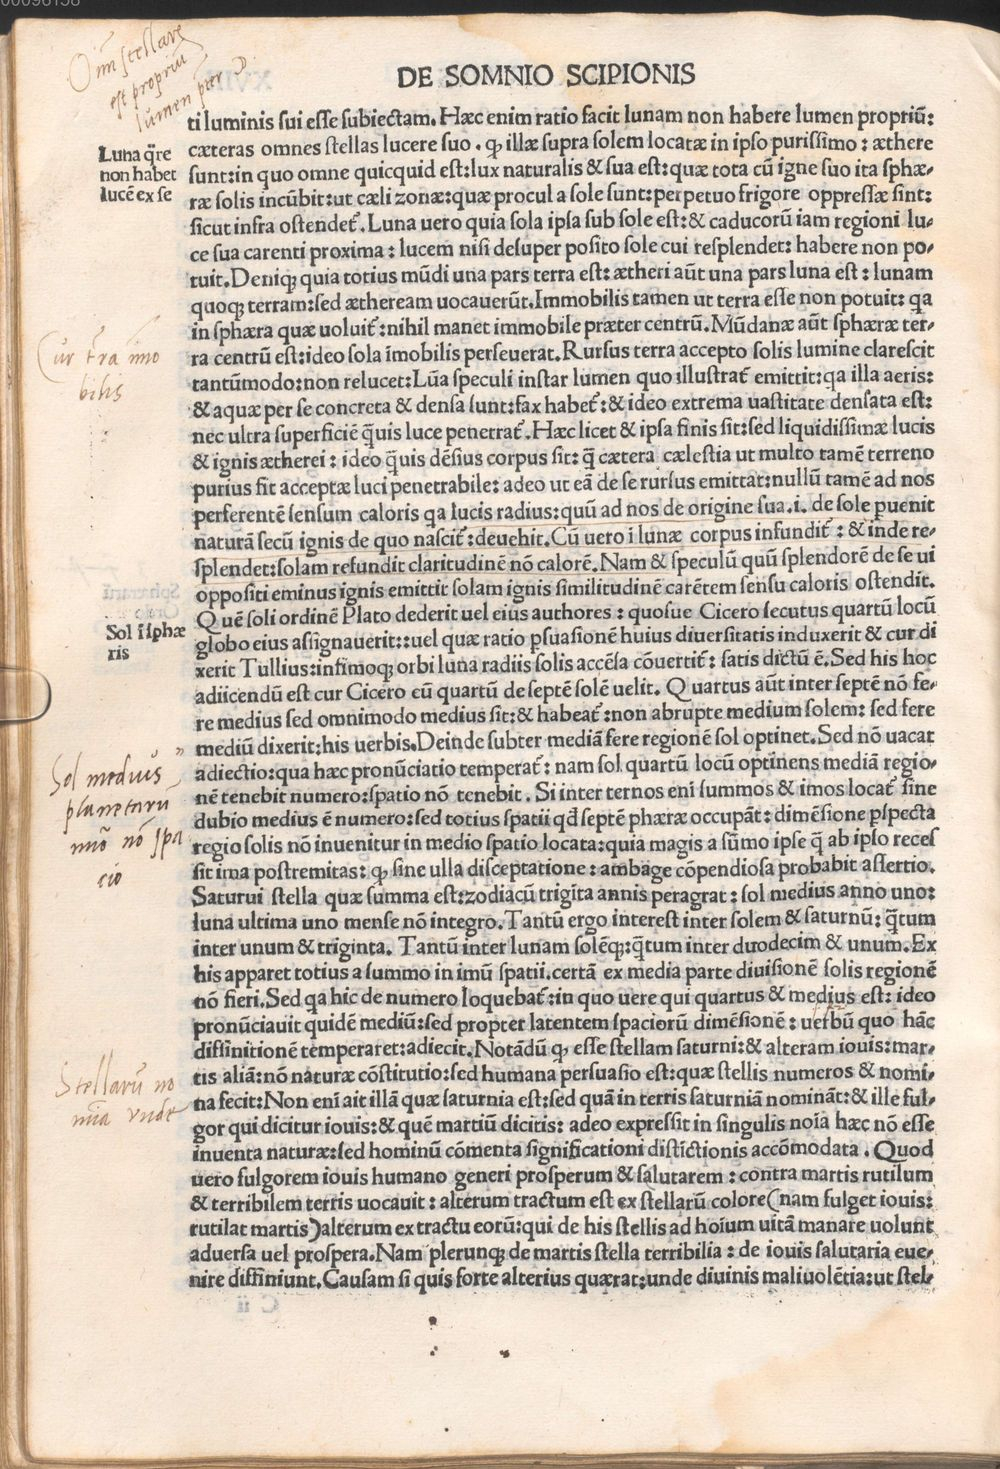 Oim̄ stellarū
est propriū
lumen p̄ter ☽
DE SOMNIO SCIPIONIS
ti luminis sui esse subiectam. Hæc enim ratio facit lunam non habere lumen propriū:
Luna q̄re
non habet
lucē ex se
cæteras omnes stellas lucere suo. ꝙ illæ supra solem locatæ in ipso purissimo: æthere
sunt: in quo omne quicquid est: lux naturalis & sua est: quæ tota cū igne suo ita sphæ-
ræ solis incūbit: ut cæli zonæ: quæ procul a sole sunt: perpetuo frigore oppressæ sint:
sicut infra ostendet̄. Luna uero quia sola ipsa sub sole est: & caducorū iam regioni lu-
ce sua carenti proxima: lucem nisi desuper posito sole cui resplendet: habere non po-
tuit. Deniqꝫ quia totius mūdi una pars terra est: ætheri aūt una pars luna est: lunam
quoqꝫ terram: sed ætheream uocauerūt. Immobilis tamen ut terra esse non potuit: qa
in sphæra quæ uoluit̄: nihil manet immobile præter centrū. Mūdanæ aūt sphæræ ter-
Cur t̄ra imo
bilis
ra centrū est: ideo sola īmobilis perseuerat. Rursus terra accepto solis lumine clarescit
tantūmodo: non relucet: Lūa speculi instar lumen quo illustrat̄ emittit: qa illa aeris:
& aquæ per se concreta & densa sunt: fax habet̄: & ideo extrema uastitate densata est:
nec ultra superficiē q̄uis luce penetrat̄. Hæc licet & ipsa finis sit: sed liquidissimæ lucis
& ignis ætherei: ideo q̄uis dēsius corpus sit: q̄ cætera cælestia ut multo tamē terreno
purius fit acceptæ luci penetrabile: adeo ut eā de se rursus emittat: nullū tamē ad nos
perferentē sensum caloris qa lucis radius: quū ad nos de origine sua .i. de sole puenit
naturā secū ignis de quo nascit̄: deuehit. Cū uero ī lunæ corpus infundit̄: & inde re-
splendet: solam refundit claritudinē nō calorē. Nam & speculū quū splendorē de se ui
oppositi eminus ignis emittit solam ignis similitudinē carētem sensu caloris ostendit.
Quē soli ordinē Plato dederit uel eius authores: quosue Cicero secutus quartū locū
Sol ī sphæ
ris
globo eius assignauerit:: uel quæ ratio psuasionē huius diuersitatis induxerit & cur di
xerit Tullius: infimoqꝫ orbi luna radiis solis accēsa cōuertit̄: satis dictū ē. Sed his hoc
adiiciendū est cur Cicero cū quartū de septē solē uelit. Quartus aūt inter septē nō fe-
re medius sed omnimodo medius sit: & habeat̄: non abrupte medium solem: sed fere
mediū dixerit: his uerbis. Deinde subter mediā fere regionē sol optinet. Sed nō uacat
Sol medius
planetarū
nūo nō spa
cio
adiectio: qua hæc pronūciatio temperat̄: nam sol quartū locū optinens mediā regio-
nē tenebit numero: spatio nō tenebit. Si inter ternos enī summos & imos locat̄ sine
dubio medius ē numero: sed totius spatii qd̄ septē phæræ occupāt: dimēsione pspecta
regio solis nō inuenitur in medio spatio locata: quia magis a sūmo ipse q̄ ab ipso reces
sit ima postremitas: ꝙ sine ulla disceptatione: ambage cōpendiosa probabit assertio.
Saturui stella quæ summa est: zodiacū trigīta annis peragrat: sol medius anno uno:
luna ultima uno mense nō integro. Tantū ergo interest inter solem & saturnū: q̄tum
inter unum & triginta. Tantū inter lunam solēqꝫ: q̄tum inter duodecim & unum. Ex
his apparet totius a summo in imū spatii. certā ex media parte diuisionē solis regionē
nō fieri. Sed qa hic de numero loquebat̄: in quo uere qui quartus & medius est: ideo
pronūciauit quidē mediū: sed propter latentem spaciorū dimēsionē: uerbū quo hāc
diffinitionē temperaret: adiecit. Notādū ꝙ esse stellam saturni: & alteram iouis: mar-
Stellarū no
mīa vnde
tis aliā: nō naturæ cōstitutio: sed humana persuasio est: quæ stellis numeros & nomi-
na fecit: Non enī ait illā quæ saturnia est: sed quā in terris saturniā nomināt: & ille ful-
gor qui dicitur iouis: & quē martiū dicitis: adeo expressit in singulis noīa hæc nō esse
inuenta naturæ: sed hominū cōmenta significationi distīctionis accōmodata. Quod
uero fulgorem iouis humano generi prosperum & salutarem: contra martis rutilum
& terribilem terris uocauit: alterum tractum est ex stellarū colore (nam fulget iouis:
rutilat martis) alterum ex tractu eorū: qui de his stellis ad hoīum uitā manare uolunt
aduersa uel prospera. Nam plerunqꝫ de martis stella terribilia: de iouis salutaria eue-
nire diffiniunt. Causam si quis forte alterius quærat: unde diuinis maliuolētia: ut stel-